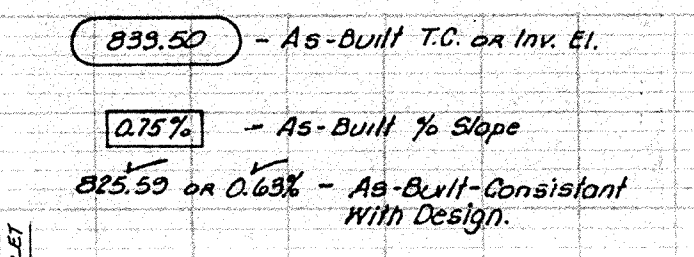 839.50 - As-Built T.C. or Inv. El.
0.75% - As-Built % Slope
825.59 or 0.63% - As-Built-Consistant
With Design.
LET